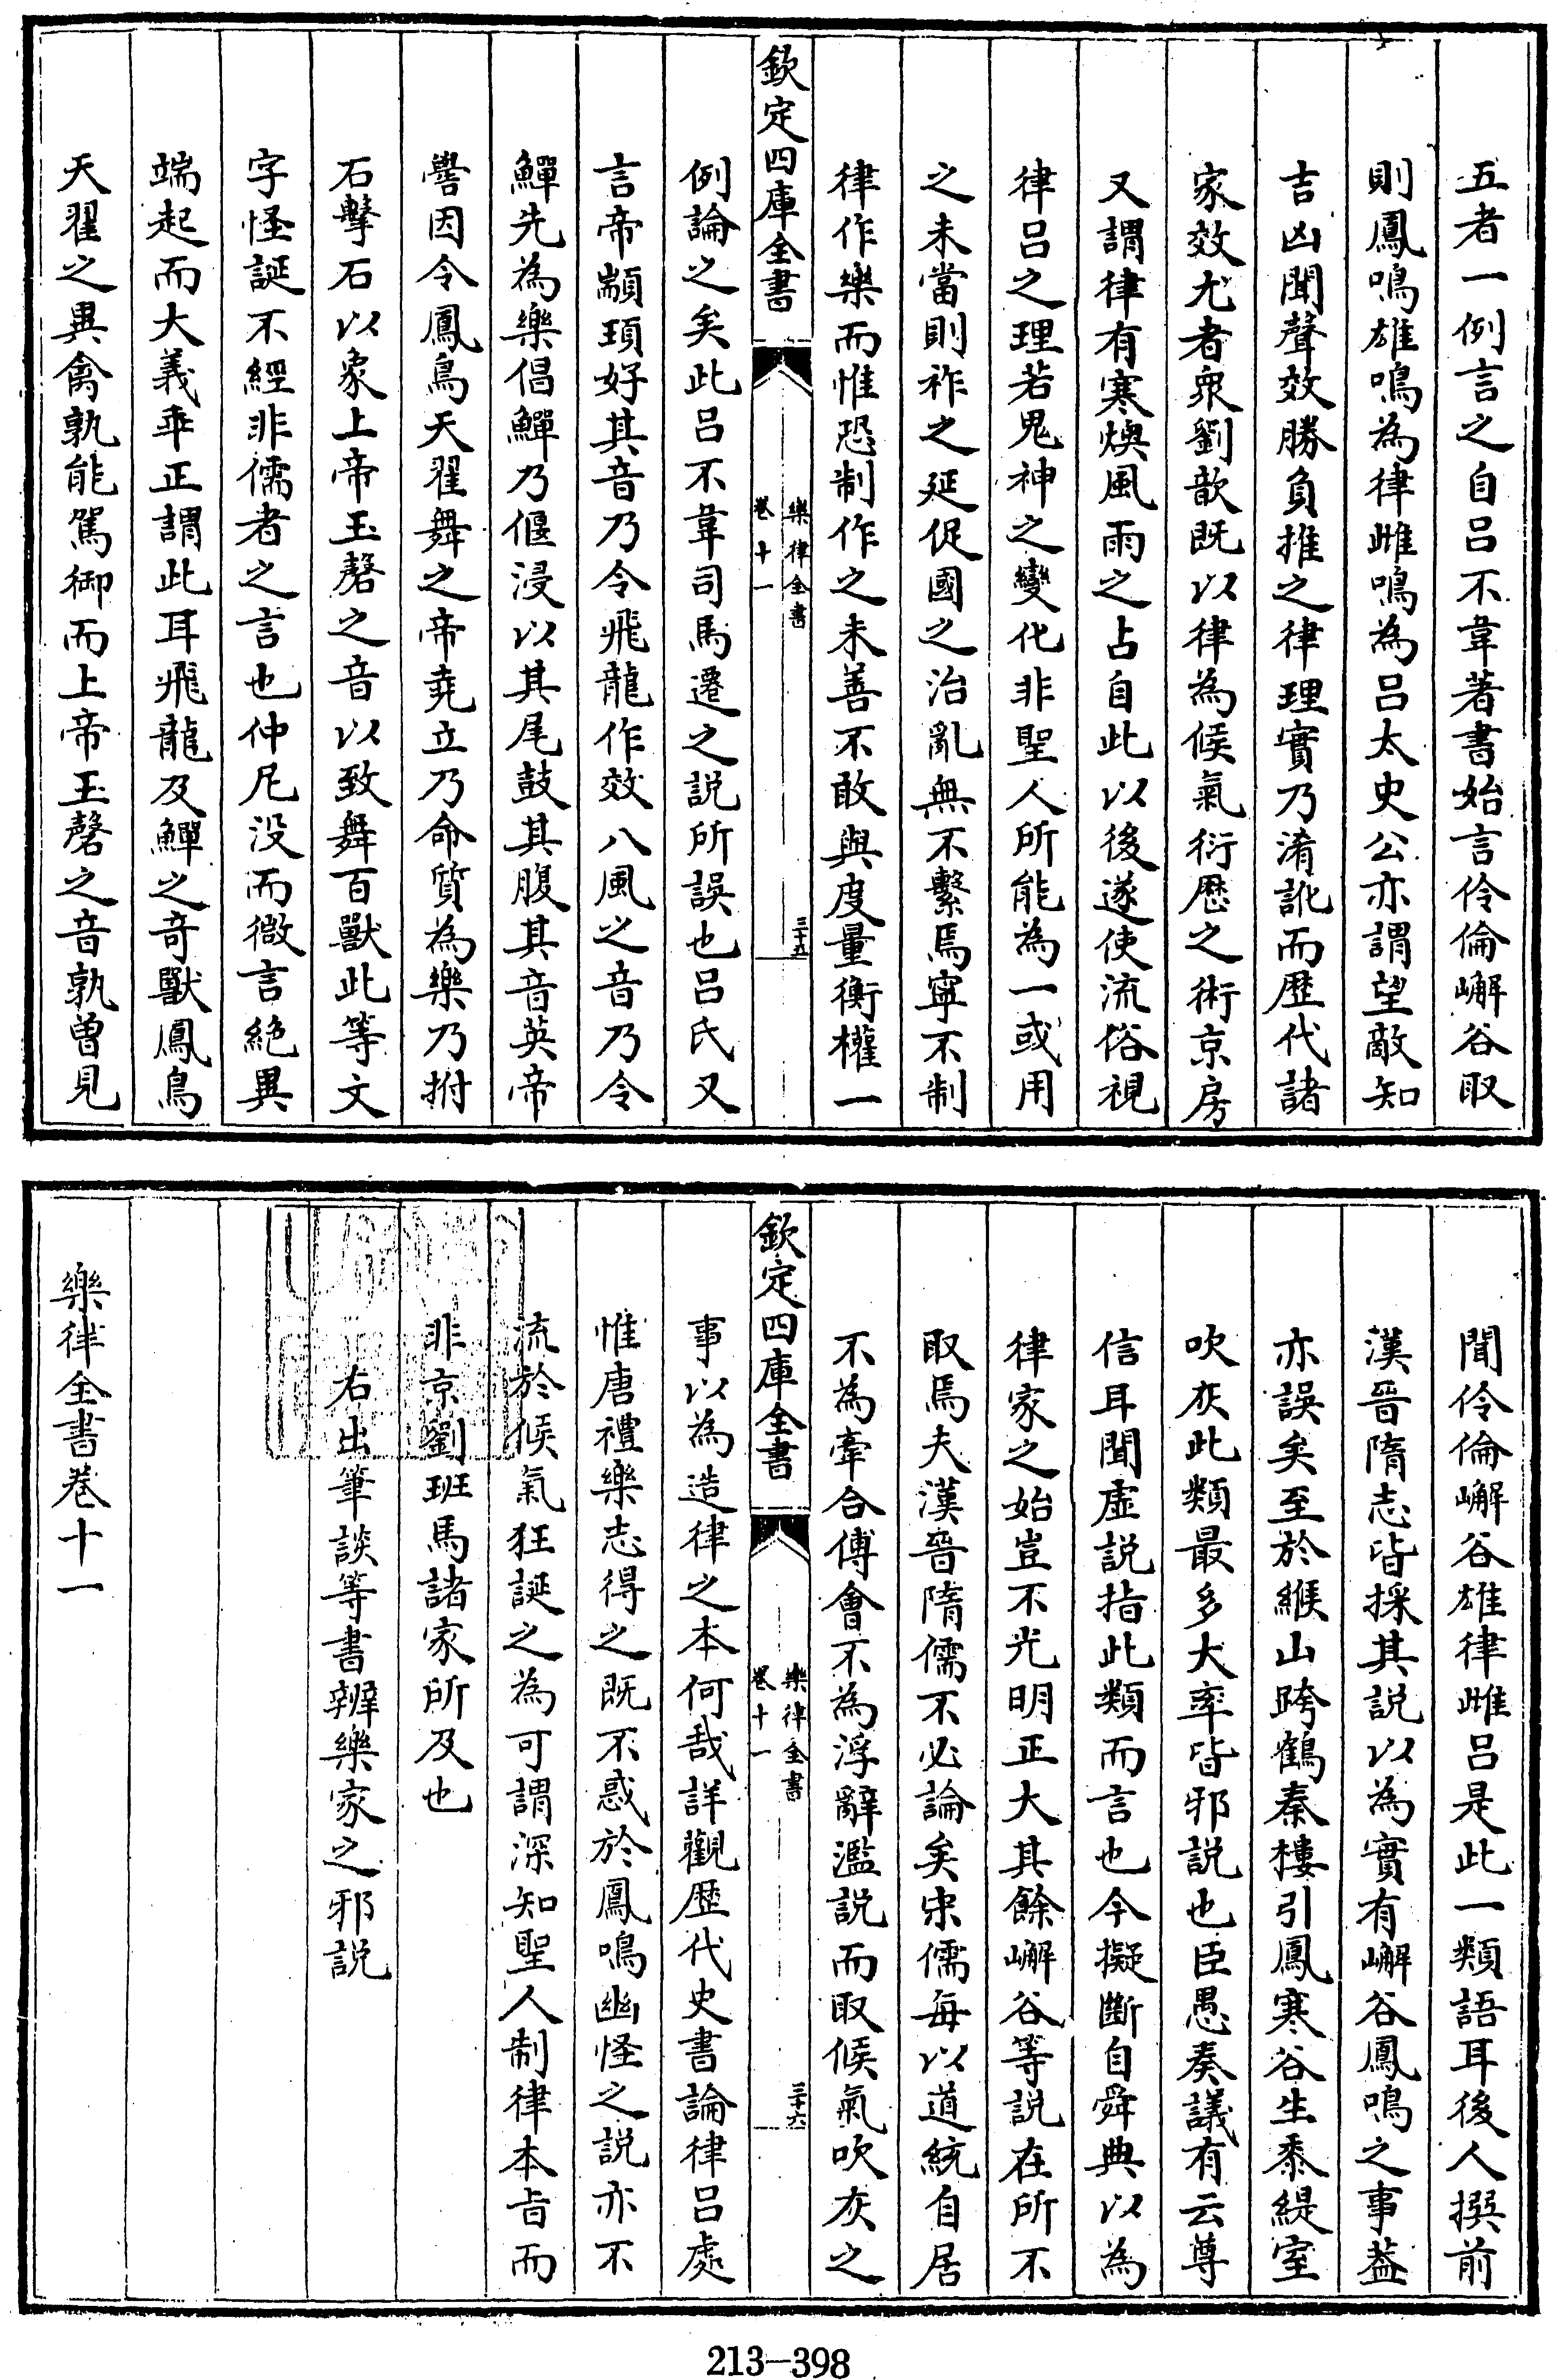 五者一例言之自呂不韋著書始言伶倫嶰谷取
則鳳鳴雄鳴為律雌鳴為呂太史公亦謂望敵知
吉凶聞聲效勝負推之律理實乃淆訛而歴代諸
家效尤者衆劉歆既以律為候氣衍厯之術京房
又謂律有寒燠風雨之占自此以後遂使流俗視
律呂之理若鬼神之變化非聖人所能為一或用
之未當則祚之延促國之治亂無不繫焉寜不制
律作樂而惟恐制作之未善不敢與度量衡權一
欽定四庫全書
樂律全書
卷十一
三十五
例論之矣此呂不韋司馬遷之説所誤也呂氏又
言帝顓頊好其音乃令飛龍作效八風之音乃令
鱓先為樂倡鱓乃偃浸以其尾鼓其腹其音英帝
嚳因令鳳鳥天翟舞之帝堯立乃命質為樂乃拊
石擊石以象上帝玉磬之音以致舞百獸此等文
字怪誕不經非儒者之言也仲尼沒而微言絶異
端起而大義乖正謂此耳飛龍及鱓之奇獸鳳鳥
天翟之異禽孰能駕御而上帝玉磬之音孰曽見
聞伶倫嶰谷雄律雌呂是此一類語耳後人撰前
漢晉隋志皆採其説以為實有嶰谷鳳鳴之事葢
亦誤矣至於緱山跨鶴秦樓引鳳寒谷生黍緹室
吹灰此類最多大率皆邪説也臣愚奏議有云尊
信耳聞虛説指此類而言也今擬斷自舜典以為
律家之始豈不光明正大其餘嶰谷等説在所不
取焉夫漢晉隋儒不必論矣宋儒每以道統自居
不為牽合傅會不為浮辭濫説而取候氣吹灰之
欽定四庫全書
樂律全書
卷十一
三十六
事以為造律之本何哉詳觀歴代史書論律呂處
惟唐禮樂志得之既不惑於鳳鳴幽怪之説亦不
流於候氣狂誕之為可謂深知聖人制律本旨而
非京劉班馬諸家所及也
右出筆談等書辨樂家之邪説
樂律全書卷十一
213-398